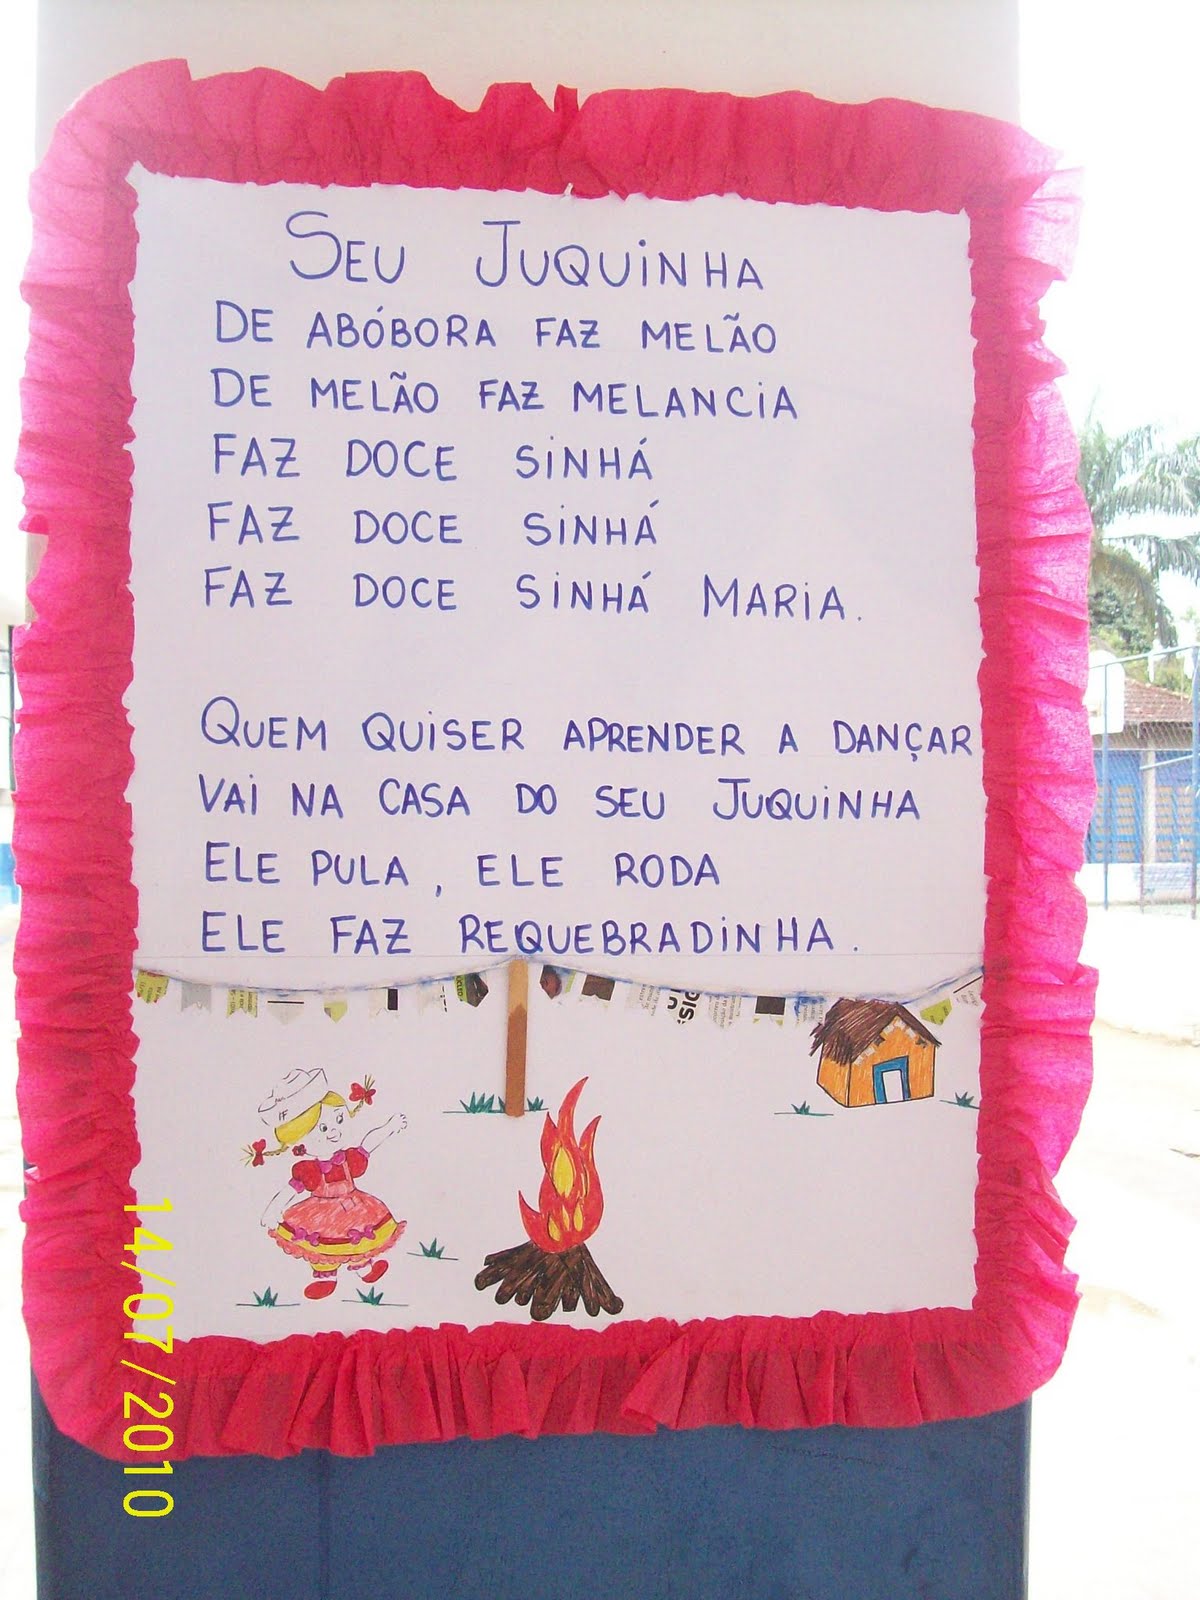 SEU JUQUINHA
DE ABÓBORA FAZ MELÃO
DE MELÃO FAZ MELANCIA
FAZ DOCE SINHÁ
FAZ DOCE SINHÁ
FAZ DOCE SINHÁ MARIA.
QUEM QUISER APRENDER A DANÇAR
VAI NA CASA DO SEU JUQUINHA
ELE PULA, ELE RODA
ELE FAZ REQUEBRADINHA.
14/07/2010